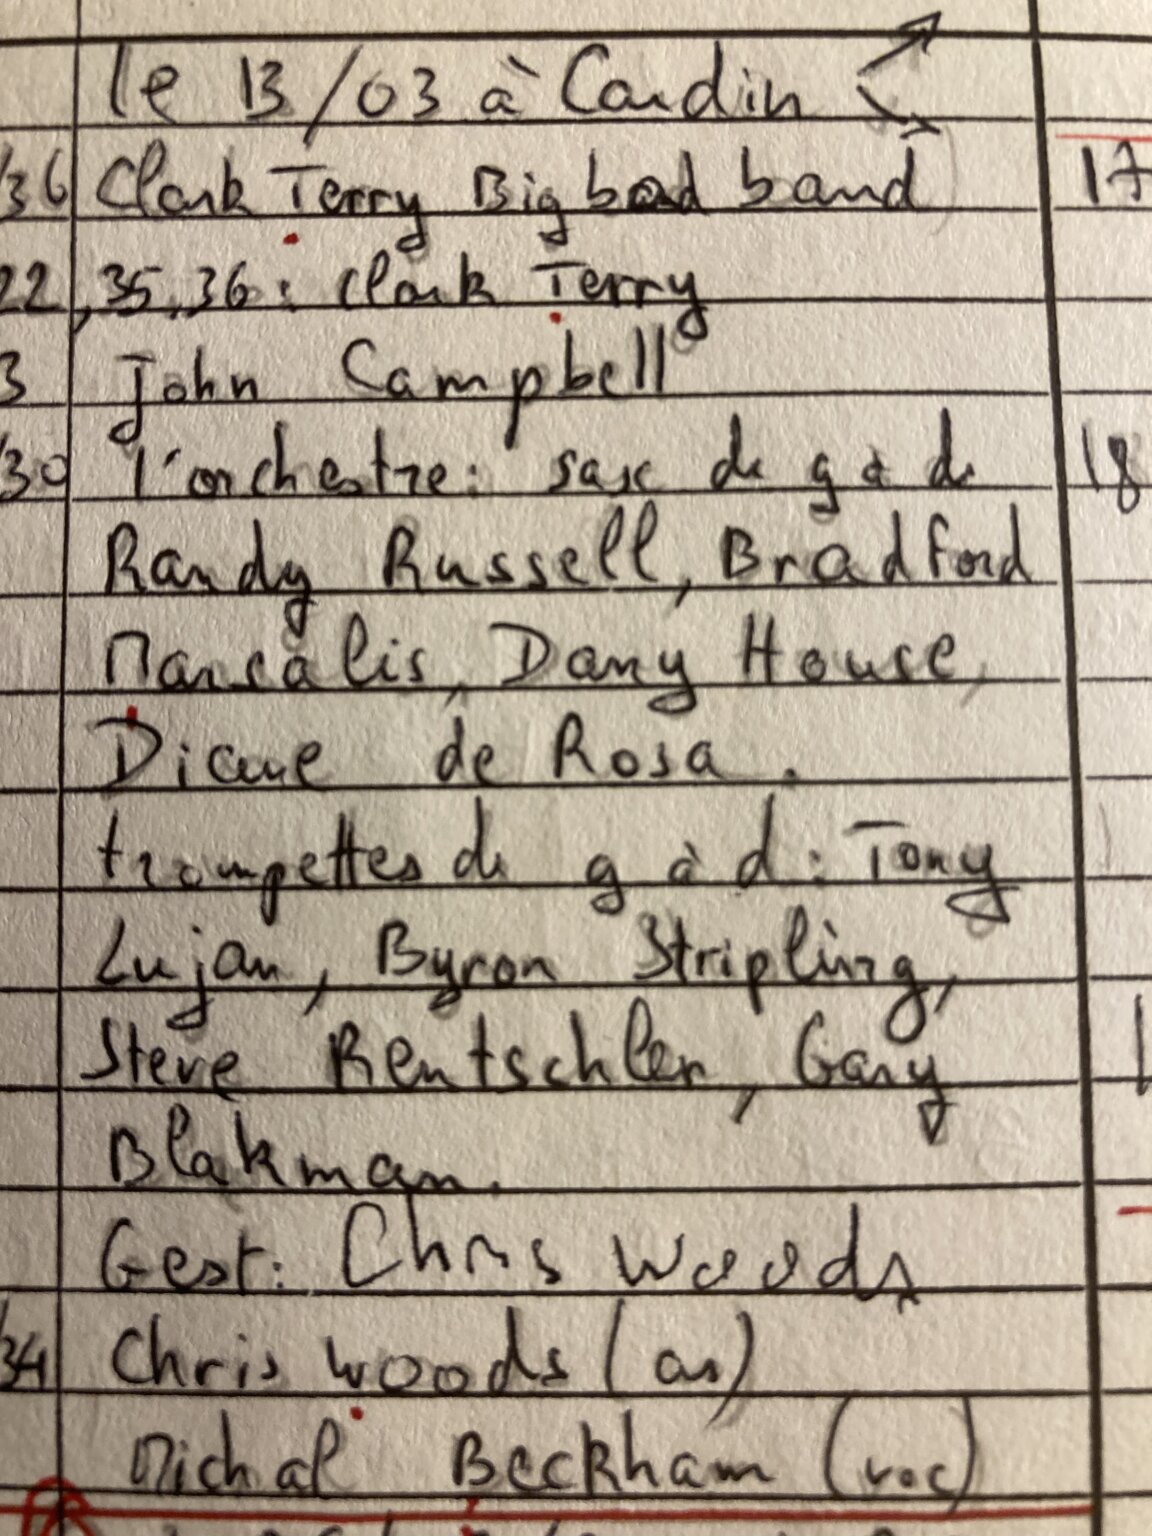 le 13/03 à Cardin
/36 Clark Terry Big bad band 17
22, 35, 36 : Clark Terry
3 John Campbell
/30 l'orchestre : sax de g à d 18
Randy Russell, Bradford
Marsalis, Dany House,
Diane de Rosa.
trompettes de g à d : Tony
Lujan, Byron Stripling,
Steve Rentschler, Gary
Blakman.
Gest : Chris Woods
/34 Chris Woods (as)
Michal Beckham (voc)